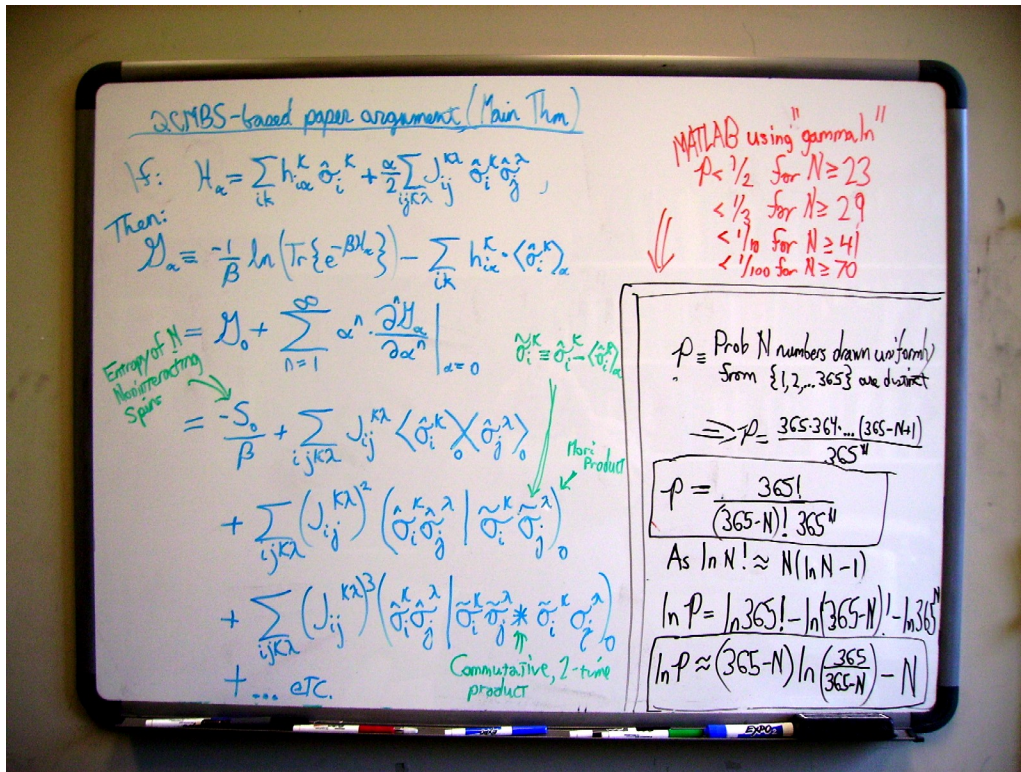 2CMBS-based paper argument, (Main Thm)
If: H_α = Σ_{ik} h_{iα}^κ σ̂_i^κ + α/2 Σ_{ijκλ} J_{ij}^{κλ} σ̂_i^κ σ̂_j^λ ,
Then:
𝒢_α ≡ -1/β ln(Tr{e^{-βH_α}}) - Σ_{ik} h_{iα}^κ · ⟨σ̂_i^κ⟩_α
= 𝒢_0 + Σ_{n=1}^∞ α^n · ∂^n 𝒢_α / ∂α^n |_{α=0}
σ̃_i^κ ≡ σ̂_i^κ - ⟨σ̂_i^κ⟩_α
Entropy of N
Noninteracting
Spins
= -S_0/β + Σ_{ijκλ} J_{ij}^{κλ} ⟨σ̂_i^κ⟩_0 ⟨σ̂_j^λ⟩_0
Mori
Product
+ Σ_{ijκλ} (J_{ij}^{κλ})^2 (σ̂_i^κ σ̂_j^λ | σ̃_i^κ σ̃_j^λ)_0
+ Σ_{ijκλ} (J_{ij}^{κλ})^3 (σ̂_i^κ σ̂_j^λ | σ̃_i^κ σ̃_j^λ * σ̃_i^κ σ_j^λ)_0
Commutative, 2-time
product
+ ... etc.
MATLAB using "gammaln"
P < 1/2 for N ≥ 23
< 1/3 for N ≥ 29
< 1/10 for N ≥ 41
< 1/100 for N ≥ 70
P ≡ Prob N numbers drawn uniformly
from {1,2,...365} are distinct
⟹ P = 365·364·...(365-N+1) / 365^N
P = 365! / (365-N)! 365^N
As ln N! ≈ N(ln N - 1)
ln P = ln 365! - ln(365-N)! - ln 365^N
ln P ≈ (365-N) ln(365/365-N) - N
EXPO2